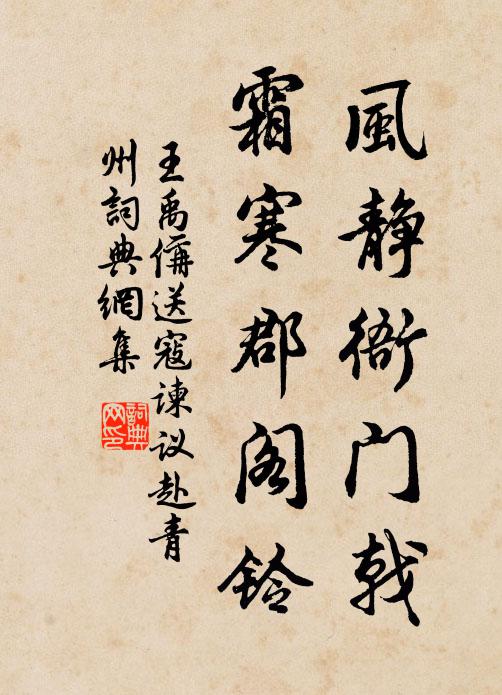 風静衙门戟
霜寒郡阁铃
王禹偁送寇谏议赴青
州詞典網集
詞典
网印